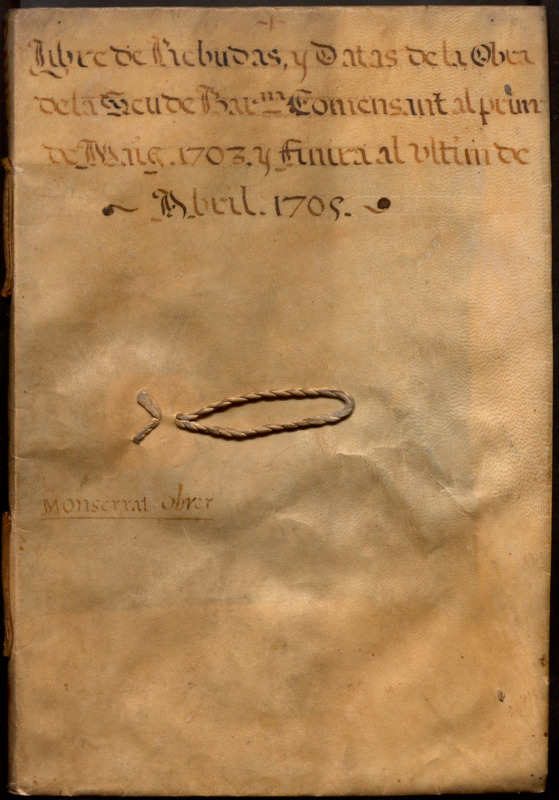 Llibre de Rebudas, y Datas de la Obra
de la Seu de Bar.na Comensant al primr
de Maig. 1703. y Finira al ultim de
Abril. 1705.
Monserrat Obrer